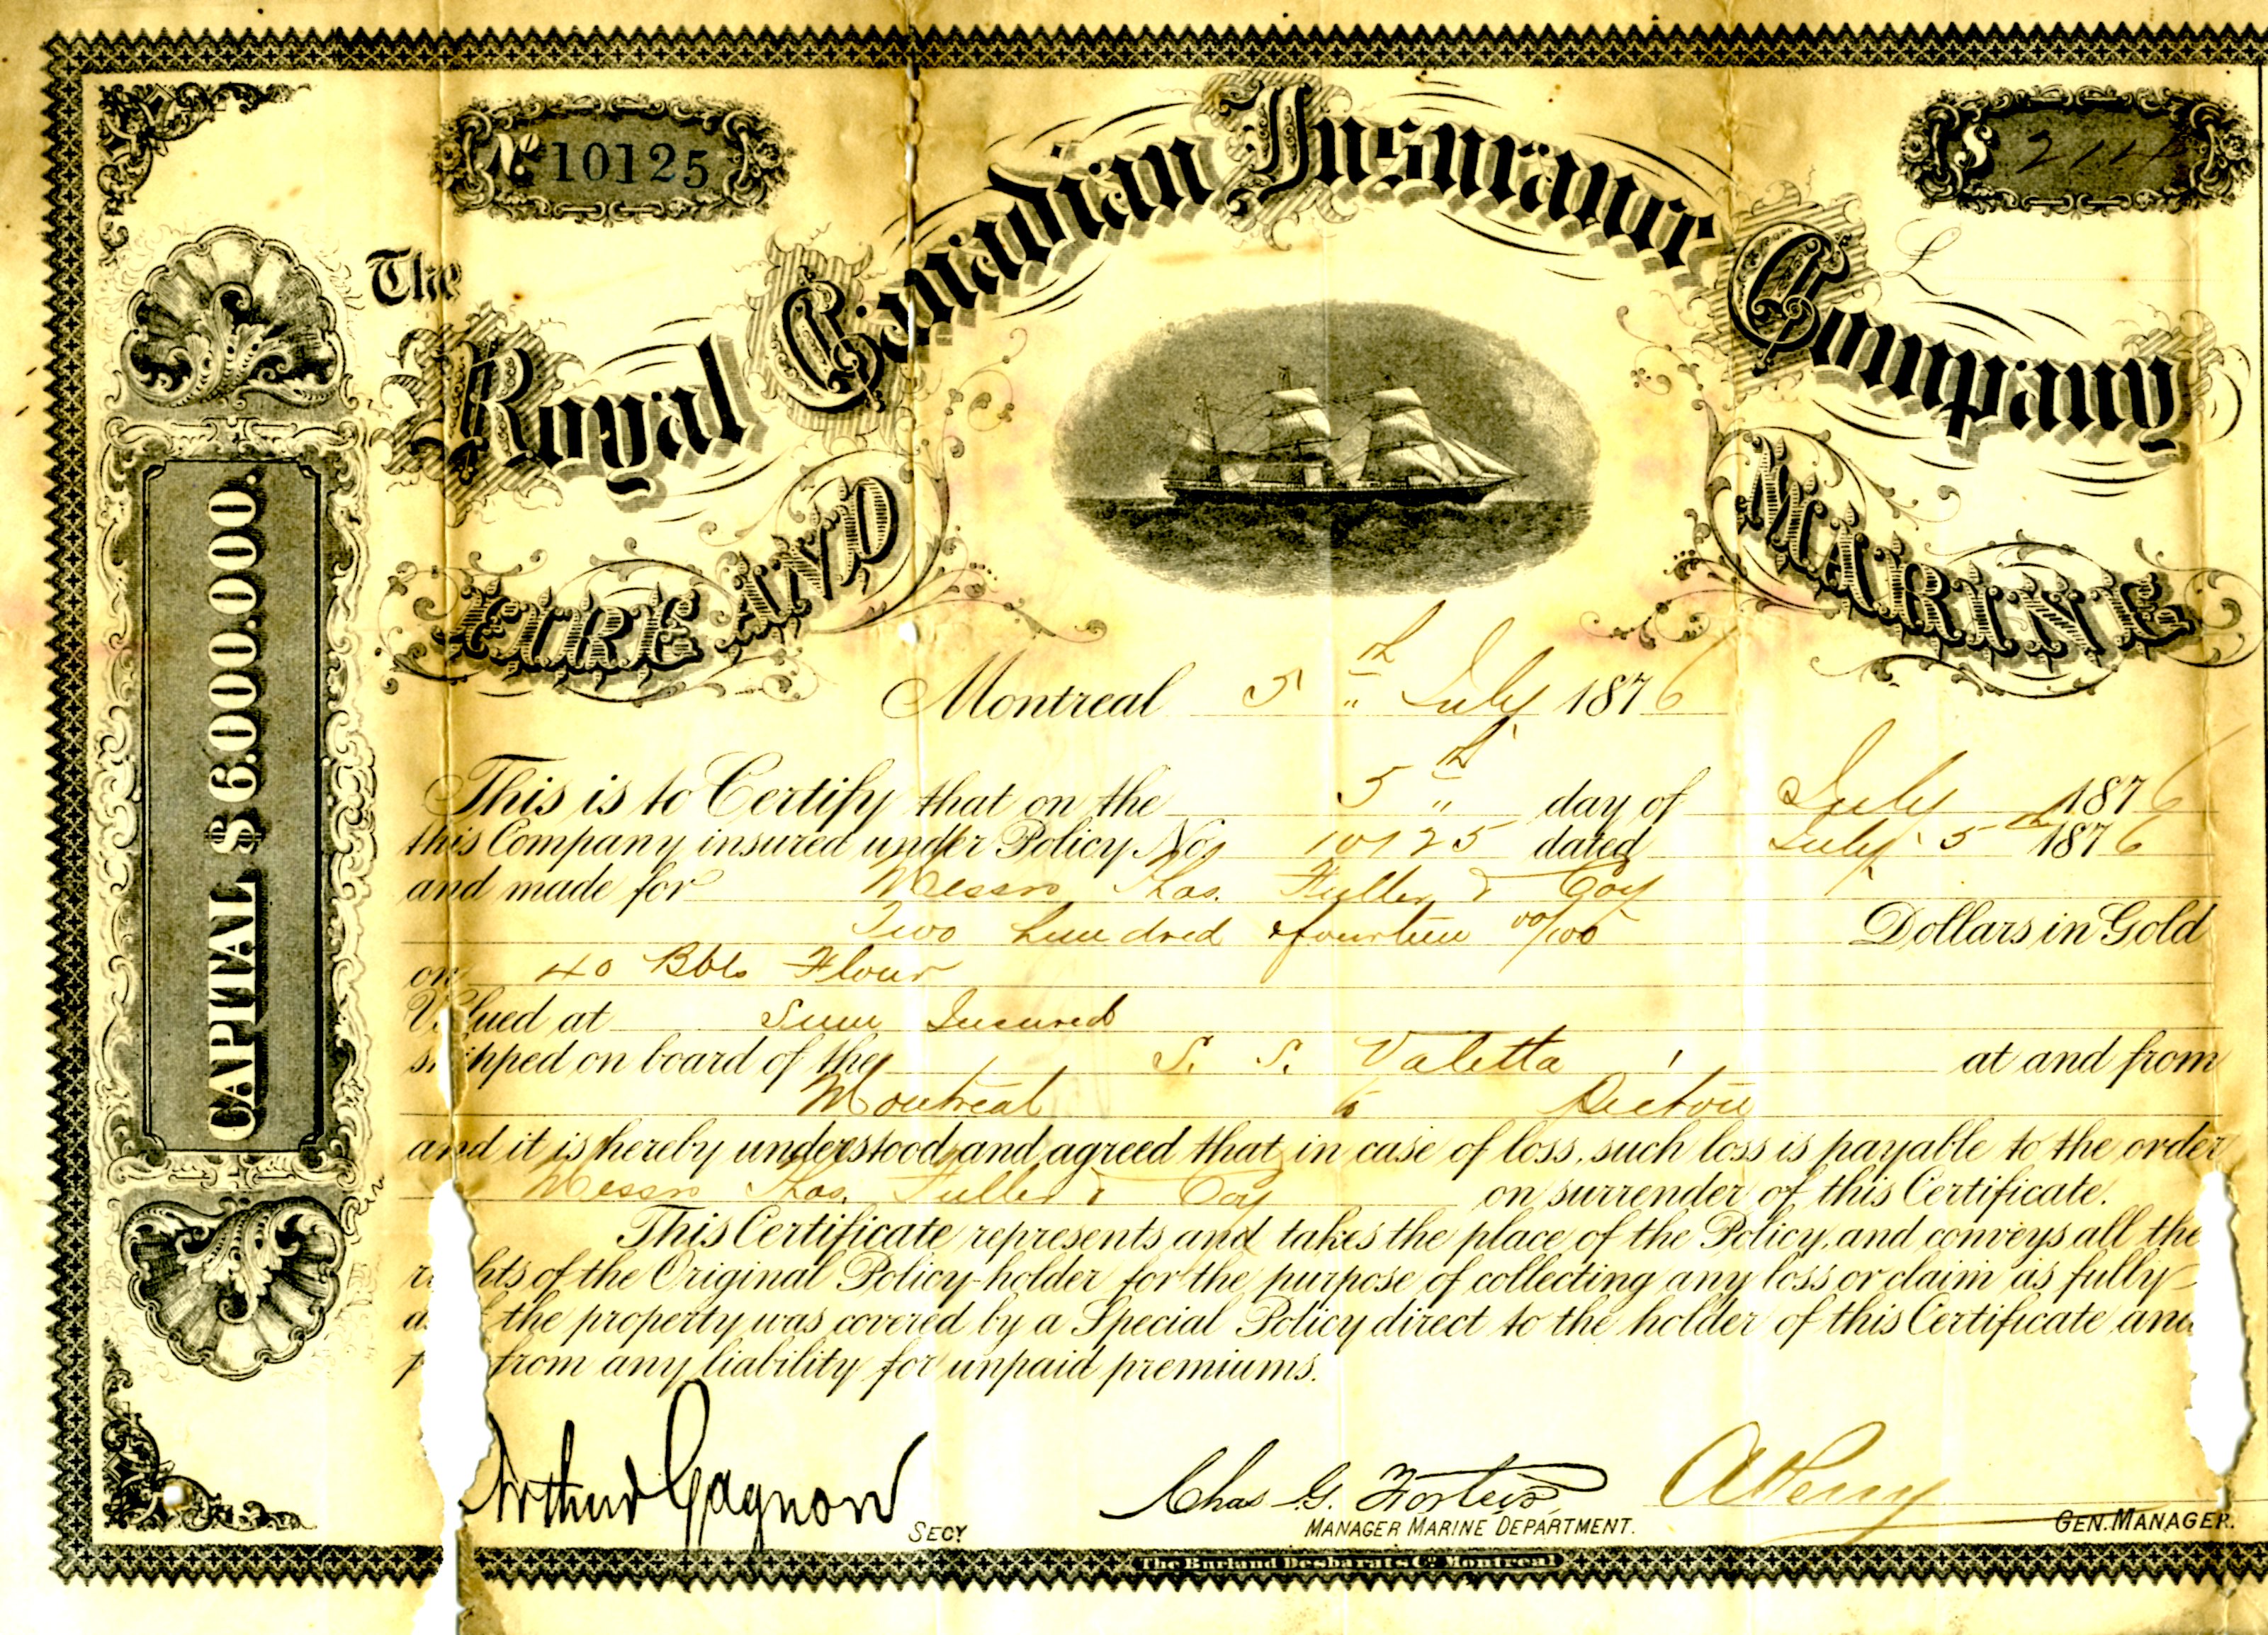 No 10125
$ 214
The
Royal Canadian Insurance Company
£
FIRE AND MARINE
CAPITAL $ 6.000.000.
Montreal 5th July 1876
This is to Certify that on the 5th day of July 1876
this Company insured under Policy No. 10125 dated July 5th 1876
and made for Messrs Thos. Fuller & Coy
Two hundred & fourteen 00/100 Dollars in Gold
on 40 Bbls Flour
Valued at Sum Insured
shipped on board of the S. S. Valetta at and from
Montreal to Pictou
and it is hereby understood and agreed that in case of loss, such loss is payable to the order
Messrs Thos. Fuller & Coy on surrender of this Certificate.
This Certificate represents and takes the place of the Policy, and conveys all the
rights of the Original Policy-holder for the purpose of collecting any loss or claim as fully
the property was covered by a Special Policy direct to the holder of this Certificate and
from any liability for unpaid premiums.
Arthur Gagnon SECY
Chas G. MANAGER MARINE DEPARTMENT.
A Perry GEN. MANAGER.
The Burland Desbarats Co. Montreal